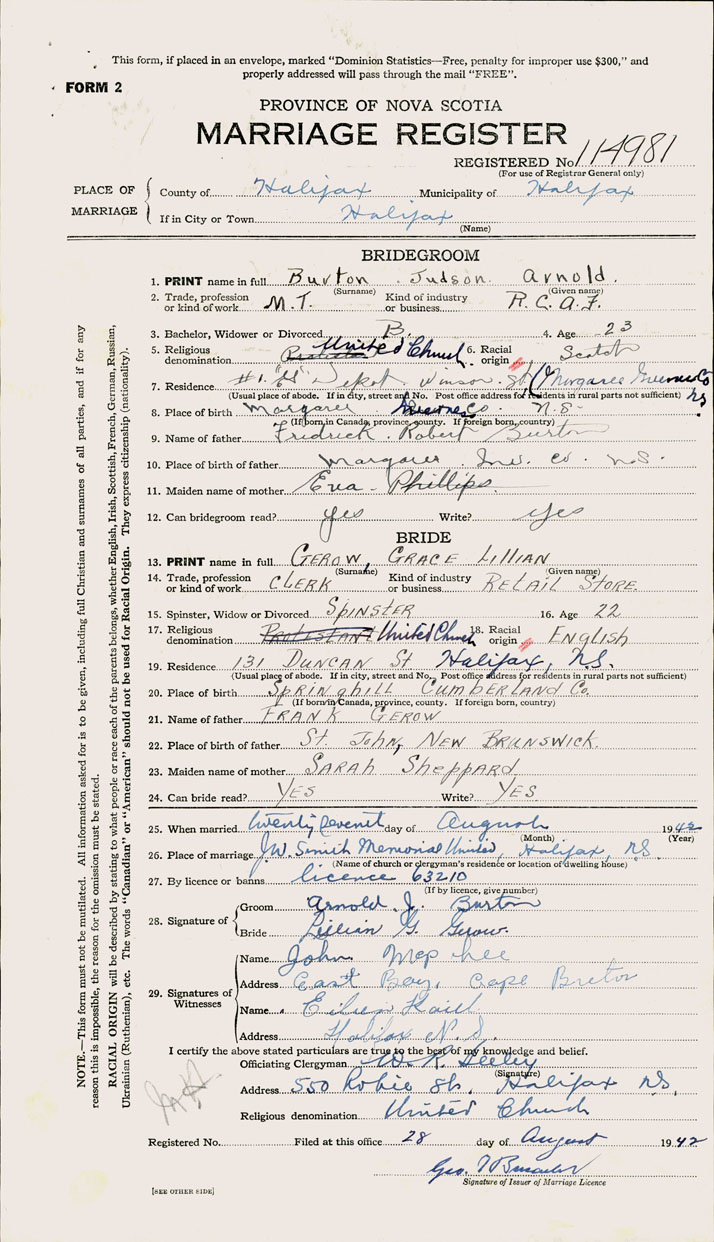 This form, if placed in an envelope, marked "Dominion Statistics—Free, penalty for improper use $300," and
properly addressed will pass through the mail "FREE".
FORM 2
PROVINCE OF NOVA SCOTIA
MARRIAGE REGISTER
REGISTERED No 114981
(For use of Registrar General only)
PLACE OF MARRIAGE
County of Halifax Municipality of Halifax
If in City or Town Halifax
(Name)
BRIDEGROOM
1. PRINT name in full Burton Judson Arnold.
(Surname) (Given name)
2. Trade, profession or kind of work M.T. Kind of industry or business R.C.A.F.
3. Bachelor, Widower or Divorced B. 4. Age 23
5. Religious denomination United Church 6. Racial origin Scotch
7. Residence #1. Depot Winsor St (Margaree Inverness Co NS
(Usual place of abode. If in city, street and No. Post office address for residents in rural parts not sufficient)
8. Place of birth Margaree Inverness Co. N.S.
(If born in Canada, province, county. If foreign born, country)
9. Name of father Fredrick Robert Burton
10. Place of birth of father Margaree Inv. Co. N.S.
11. Maiden name of mother Eva Phillips.
12. Can bridegroom read? yes Write? yes
BRIDE
13. PRINT name in full GEROW, GRACE LILLIAN
(Surname) (Given name)
14. Trade, profession or kind of work CLERK Kind of industry or business RETAIL STORE.
15. Spinster, Widow or Divorced SPINSTER 16. Age 22
17. Religious denomination PROTESTANT United Church 18. Racial origin ENGLISH
19. Residence 131 DUNCAN ST Halifax, N.S.
(Usual place of abode. If in city, street and No. Post office address for residents in rural parts not sufficient)
20. Place of birth SPRINGHILL CUMBERLAND Co.
(If born in Canada, province, county. If foreign born, country)
21. Name of father FRANK GEROW
22. Place of birth of father ST. JOHN, NEW BRUNSWICK.
23. Maiden name of mother SARAH SHEPPARD
24. Can bride read? YES Write? YES
25. When married twenty sevent day of August 1942
(Month) (Year)
26. Place of marriage J.W. Smith Memorial United, Halifax, NS.
(Name of church or clergyman's residence or location of dwelling house)
27. By licence or banns licence 63210
(If by licence, give number)
28. Signature of
Groom Arnold J. Burton
Bride Lillian G. Gerow.
29. Signatures of Witnesses
Name John McPhee
Address East Bay, Cape Breton
Name Eileen
Address Halifax N.S.
I certify the above stated particulars are true to the best of my knowledge and belief.
Officiating Clergyman W. R. Seeley
(Signature)
Address 550 Robie St. Halifax NS,
Religious denomination United Church
Registered No. Filed at this office 28 day of August 1942
Geo.
Signature of Issuer of Marriage Licence
[SEE OTHER SIDE]
NOTE.—This form must not be mutilated. All information asked for is to be given, including full Christian and surnames of all parties, and if for any
reason this is impossible, the reason for the omission must be stated.
RACIAL ORIGIN will be described by stating to what people or race each of the parents belongs, whether English, Irish, Scottish, French, German, Russian,
Ukrainian (Ruthenian), etc. The words "Canadian" or "American" should not be used for Racial Origin. They express citizenship (nationality).